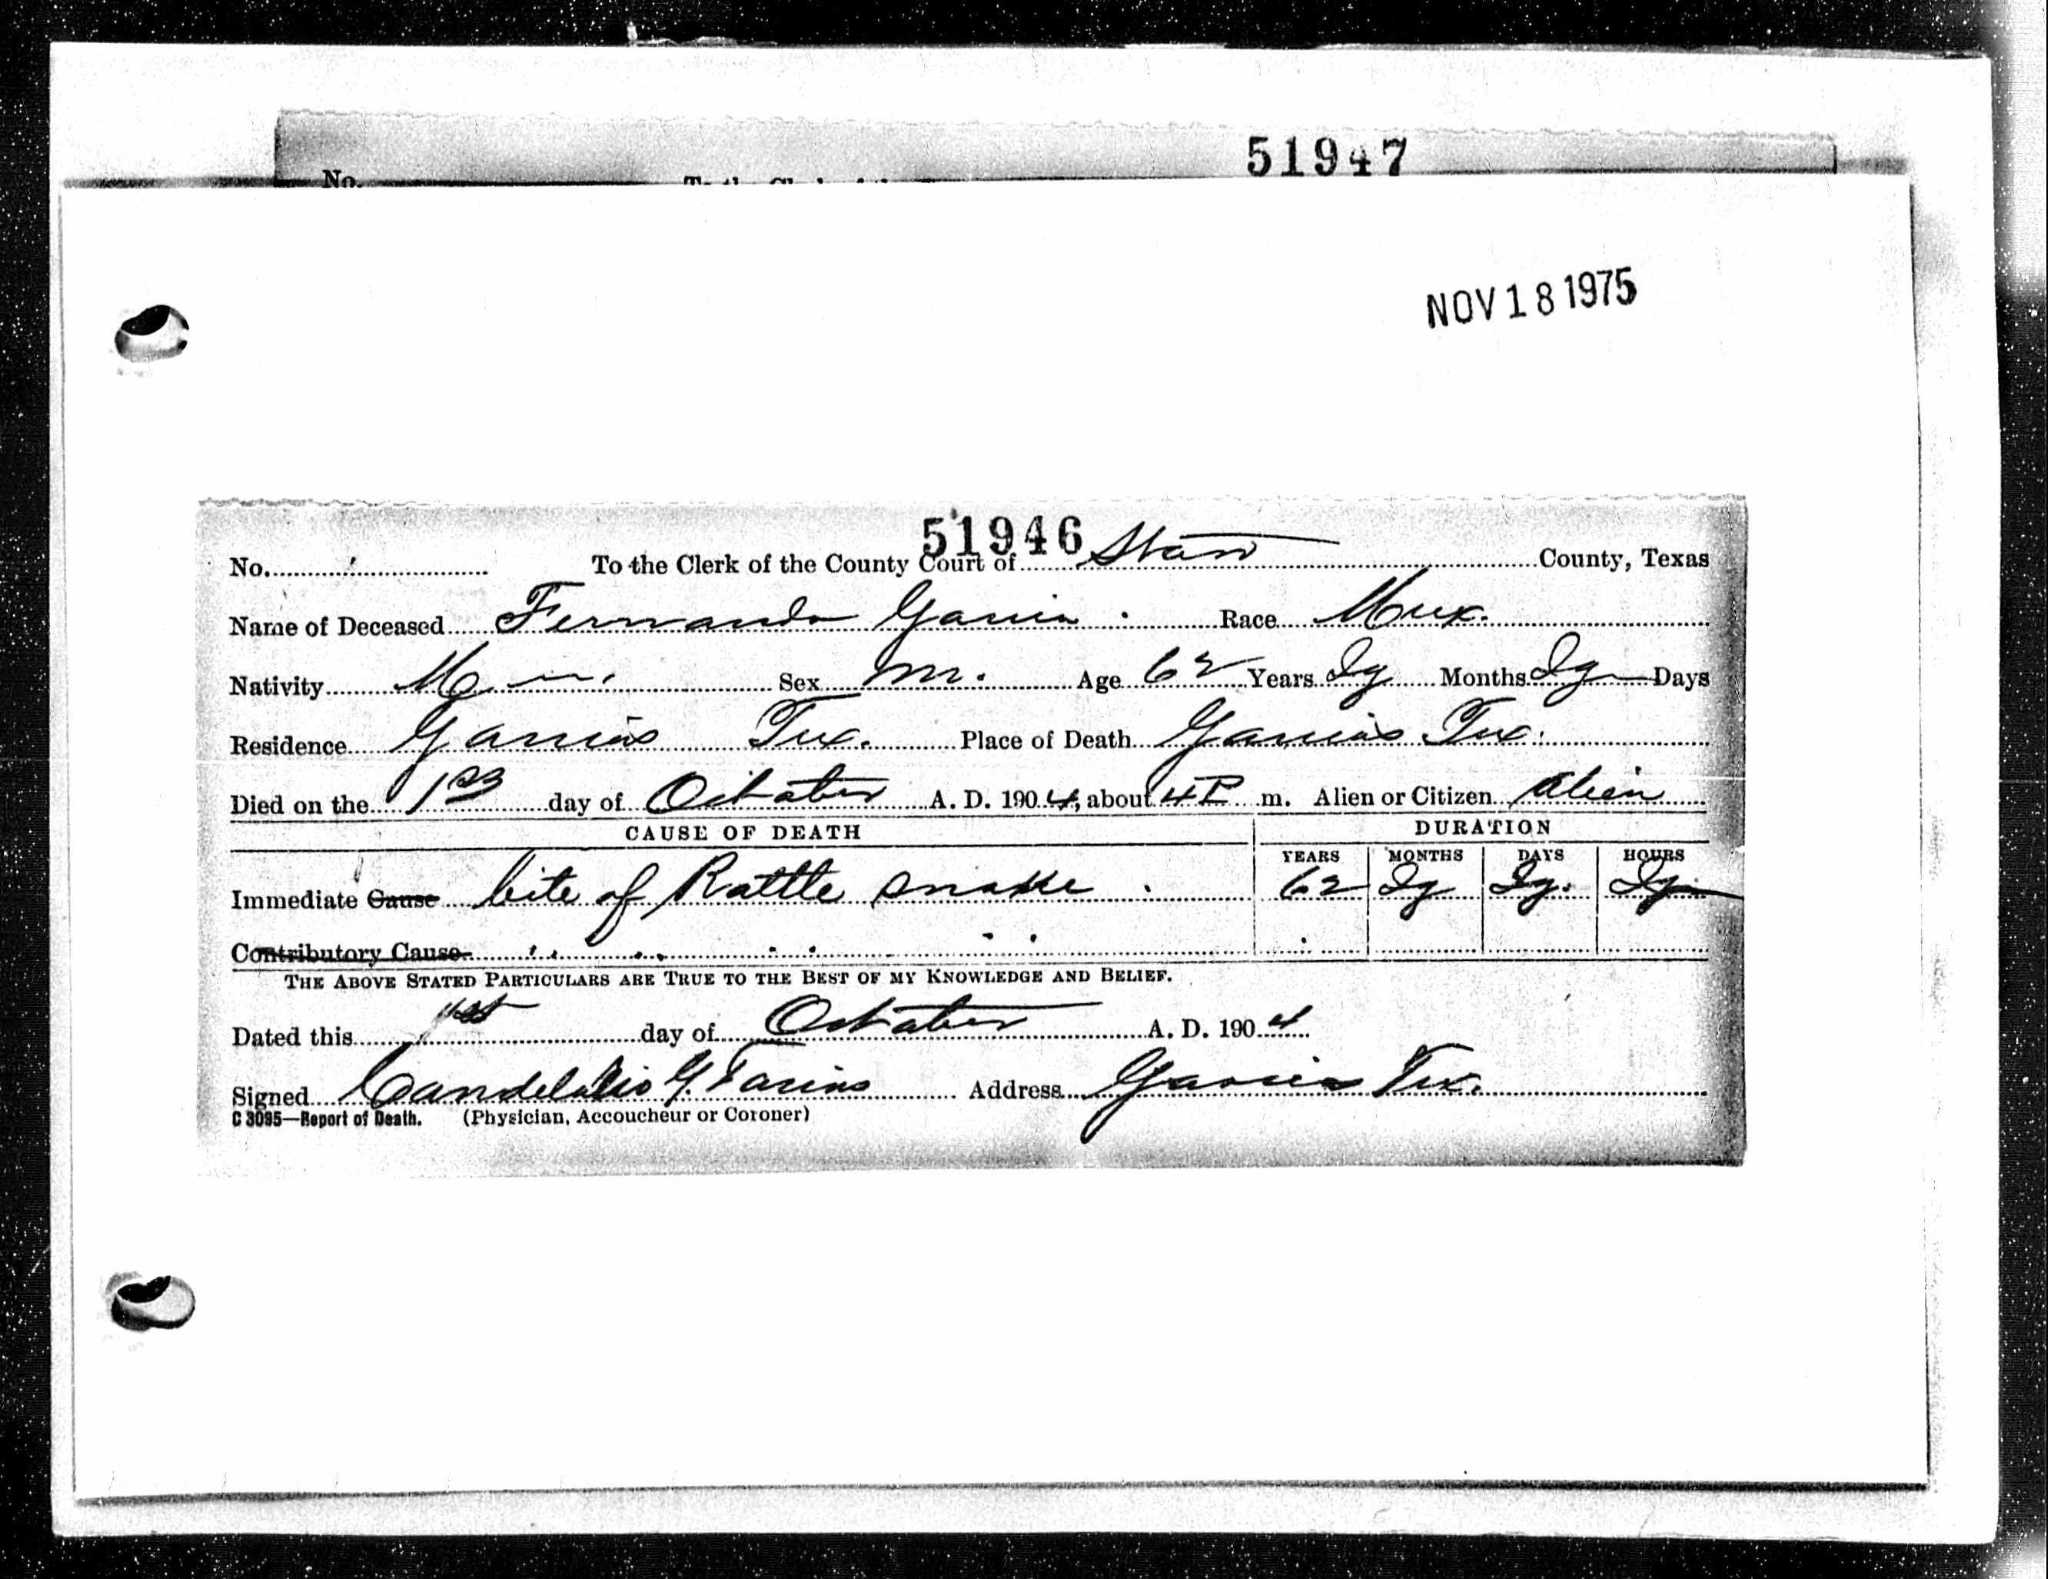 51947
No.
NOV 18 1975
51946
No. To the Clerk of the County Court of Starr County, Texas
Name of Deceased Fernando Garcia. Race Mex.
Nativity Sex M. Age 62 Years Ig Months Ig Days
Residence Garcias Tex. Place of Death Garcias Tex.
Died on the 1st day of October A. D. 1904, about 4 P m. Alien or Citizen Alien
CAUSE OF DEATH DURATION
YEARS MONTHS DAYS HOURS
Immediate Cause bite of Rattle snake. 62 Ig Ig. Ig.
Contributory Cause
THE ABOVE STATED PARTICULARS ARE TRUE TO THE BEST OF MY KNOWLEDGE AND BELIEF.
Dated this 1st day of October A. D. 1904
Signed Candelario G. Farias Address Garcias Tex.
C 3095—Report of Death. (Physician, Accoucheur or Coroner)